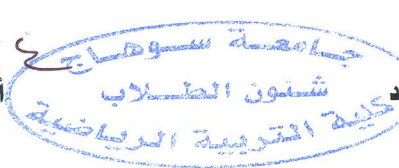 جامعة سوهاج
شئون الطلاب
كلية التربية الرياضية